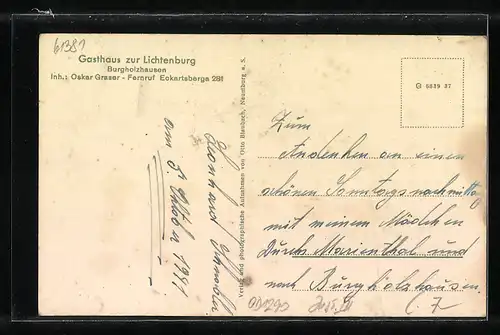 61381
Gasthaus zur Lichtenburg
Burgholzhausen
Inh.: Oskar Graser - Fernruf Eckartsberga 281
G 5839 37
Verlag und photographische Aufnahmen von Otto Bleuboch, Neustberg a. S.
Leonhard
am 5. Oktober 1941
Zum
Andenken an einen
schönen Sonntagsnachmittag
mit meinem Mädchen
Durch Marienthal und
nach Burgholzhausen